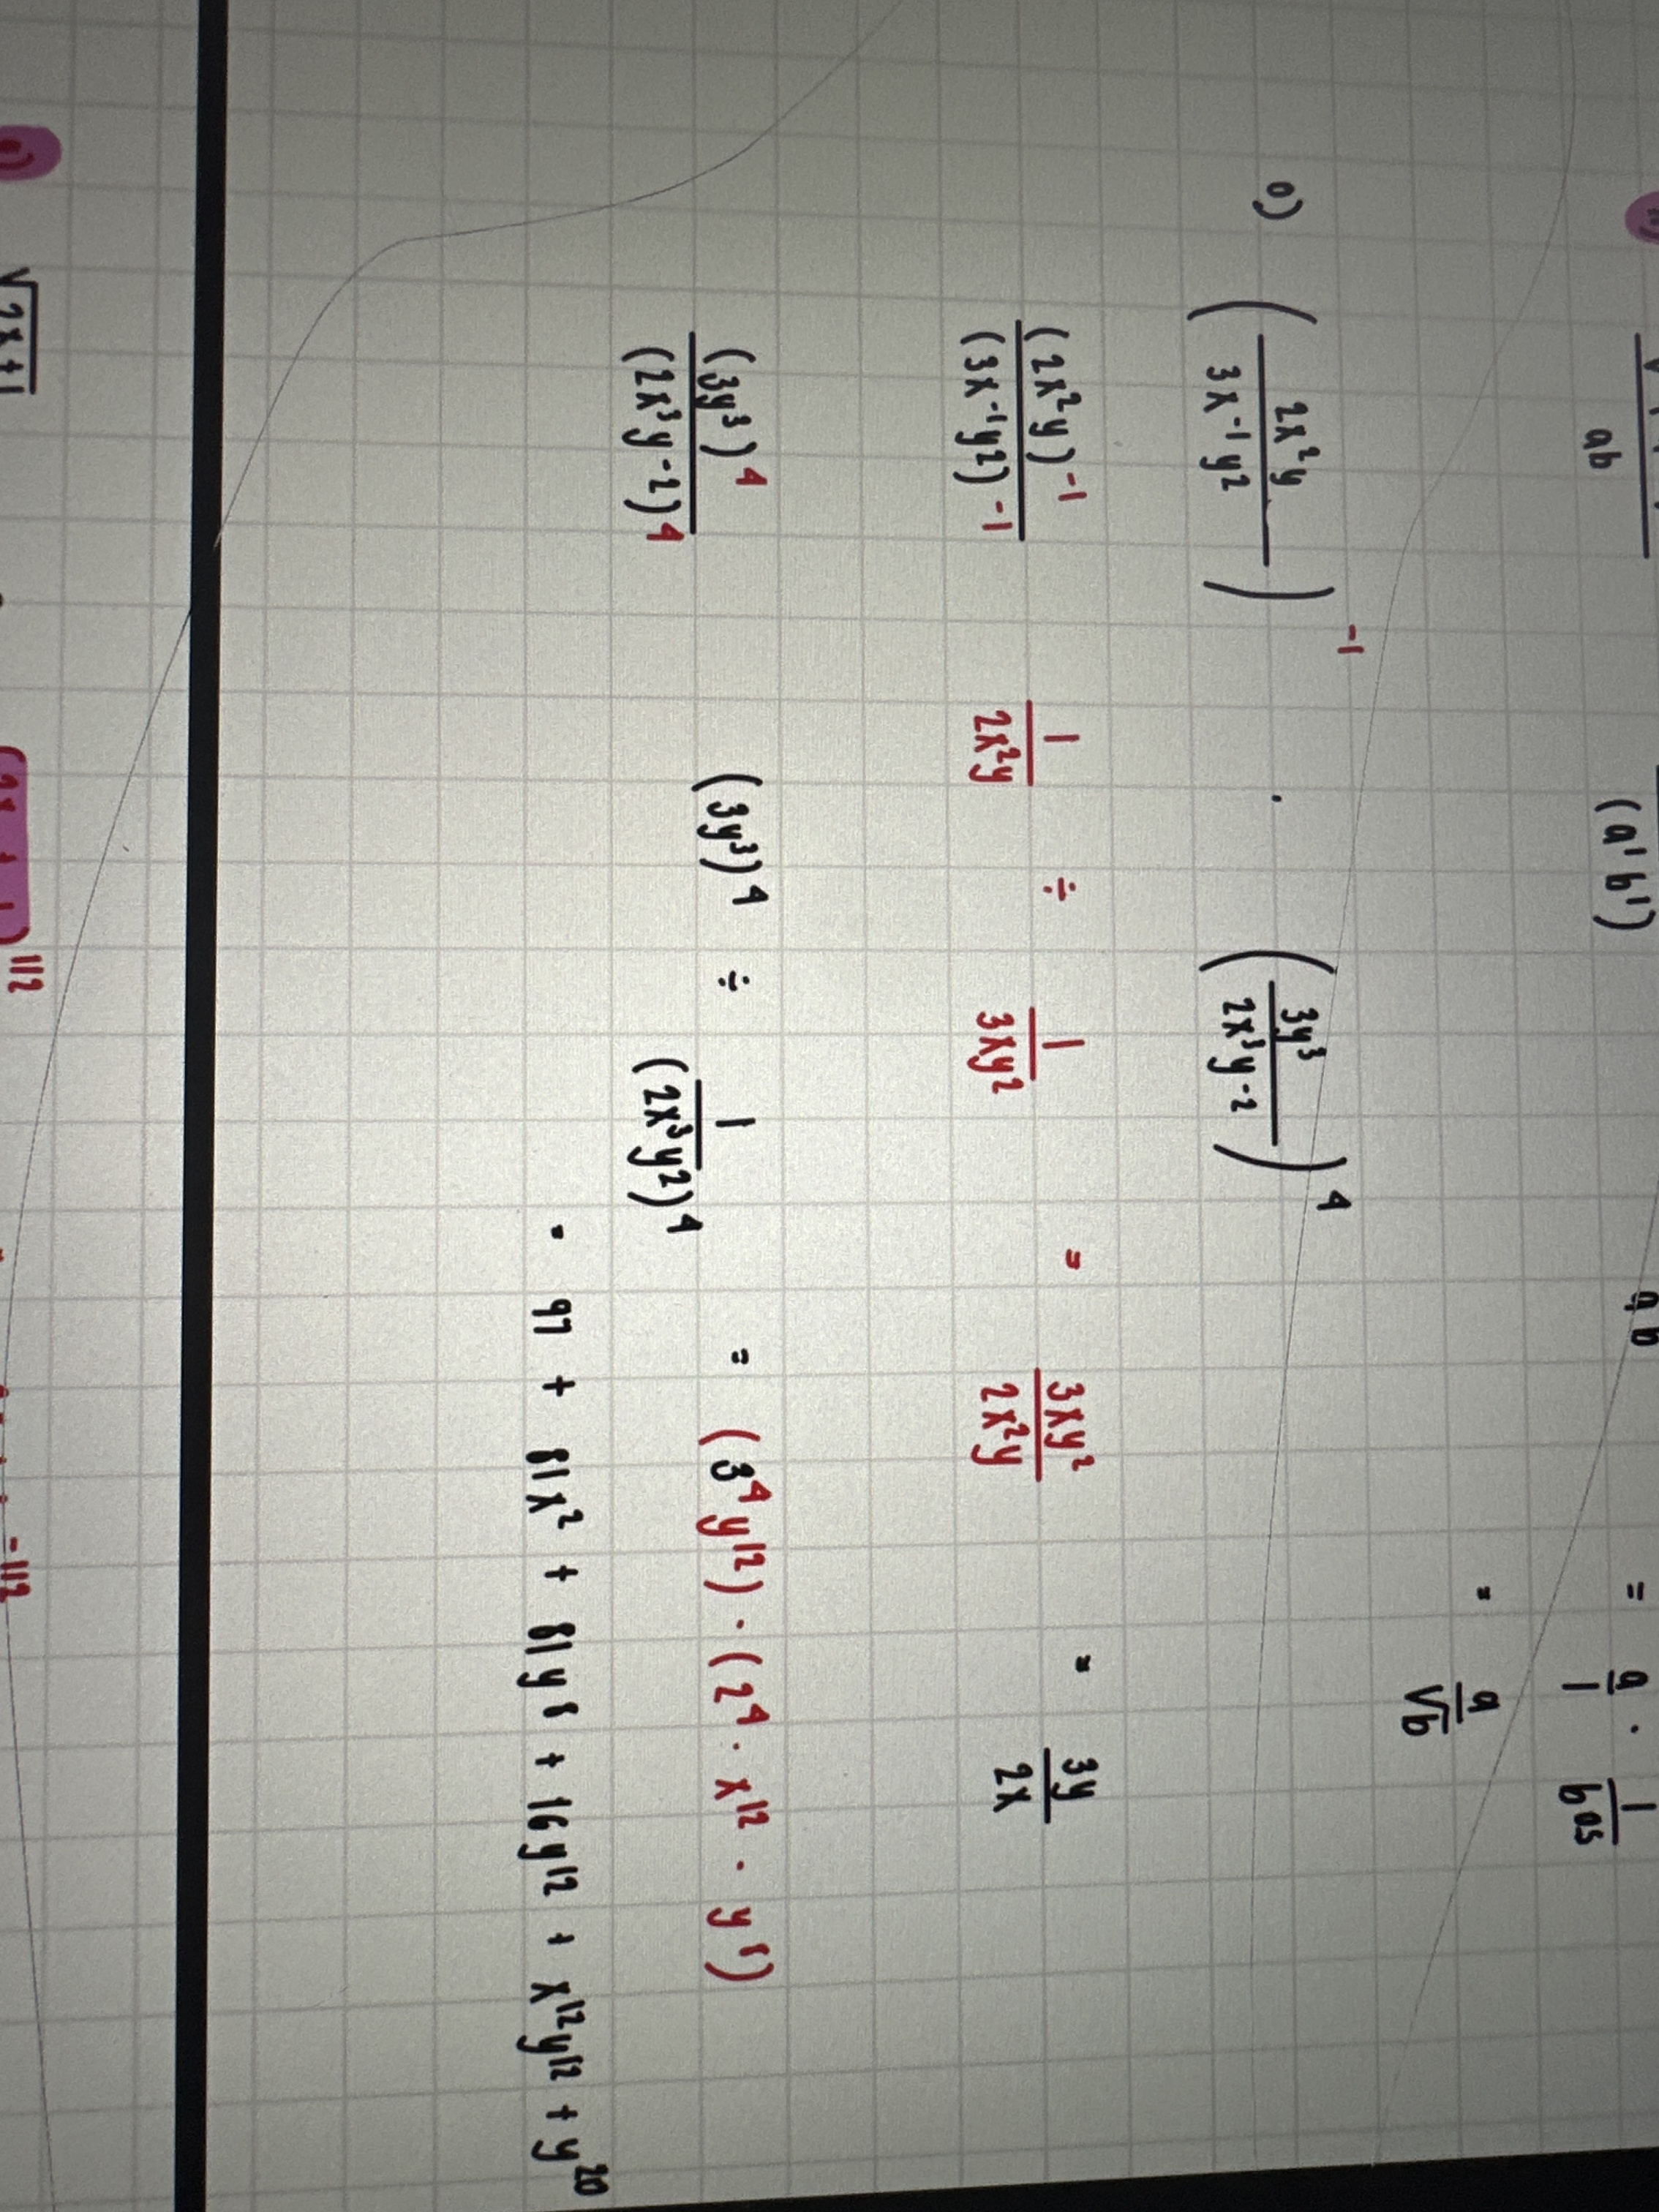 ab
(a¹b¹)
= a/1 · 1/b^0.5
= a/√b
o) ( 2x²y / 3x⁻¹y² )⁻¹ · ( 3y³ / 2x³y⁻² )⁴
(2x²y)⁻¹ / (3x⁻¹y²)⁻¹   1/2x²y ÷ 1/3xy² = 3xy²/2x²y = 3y/2x
(3y³)⁴ / (2x³y⁻²)⁴   (3y³)⁴ ÷ 1/(2x³y²)⁴ = (3⁴y¹²) · (2⁴ · x¹² · y⁸)
= 97 + 81x² + 81y⁸ + 16y¹² + x¹²y¹² + y²⁰
√2x+1
1/2
-1/2